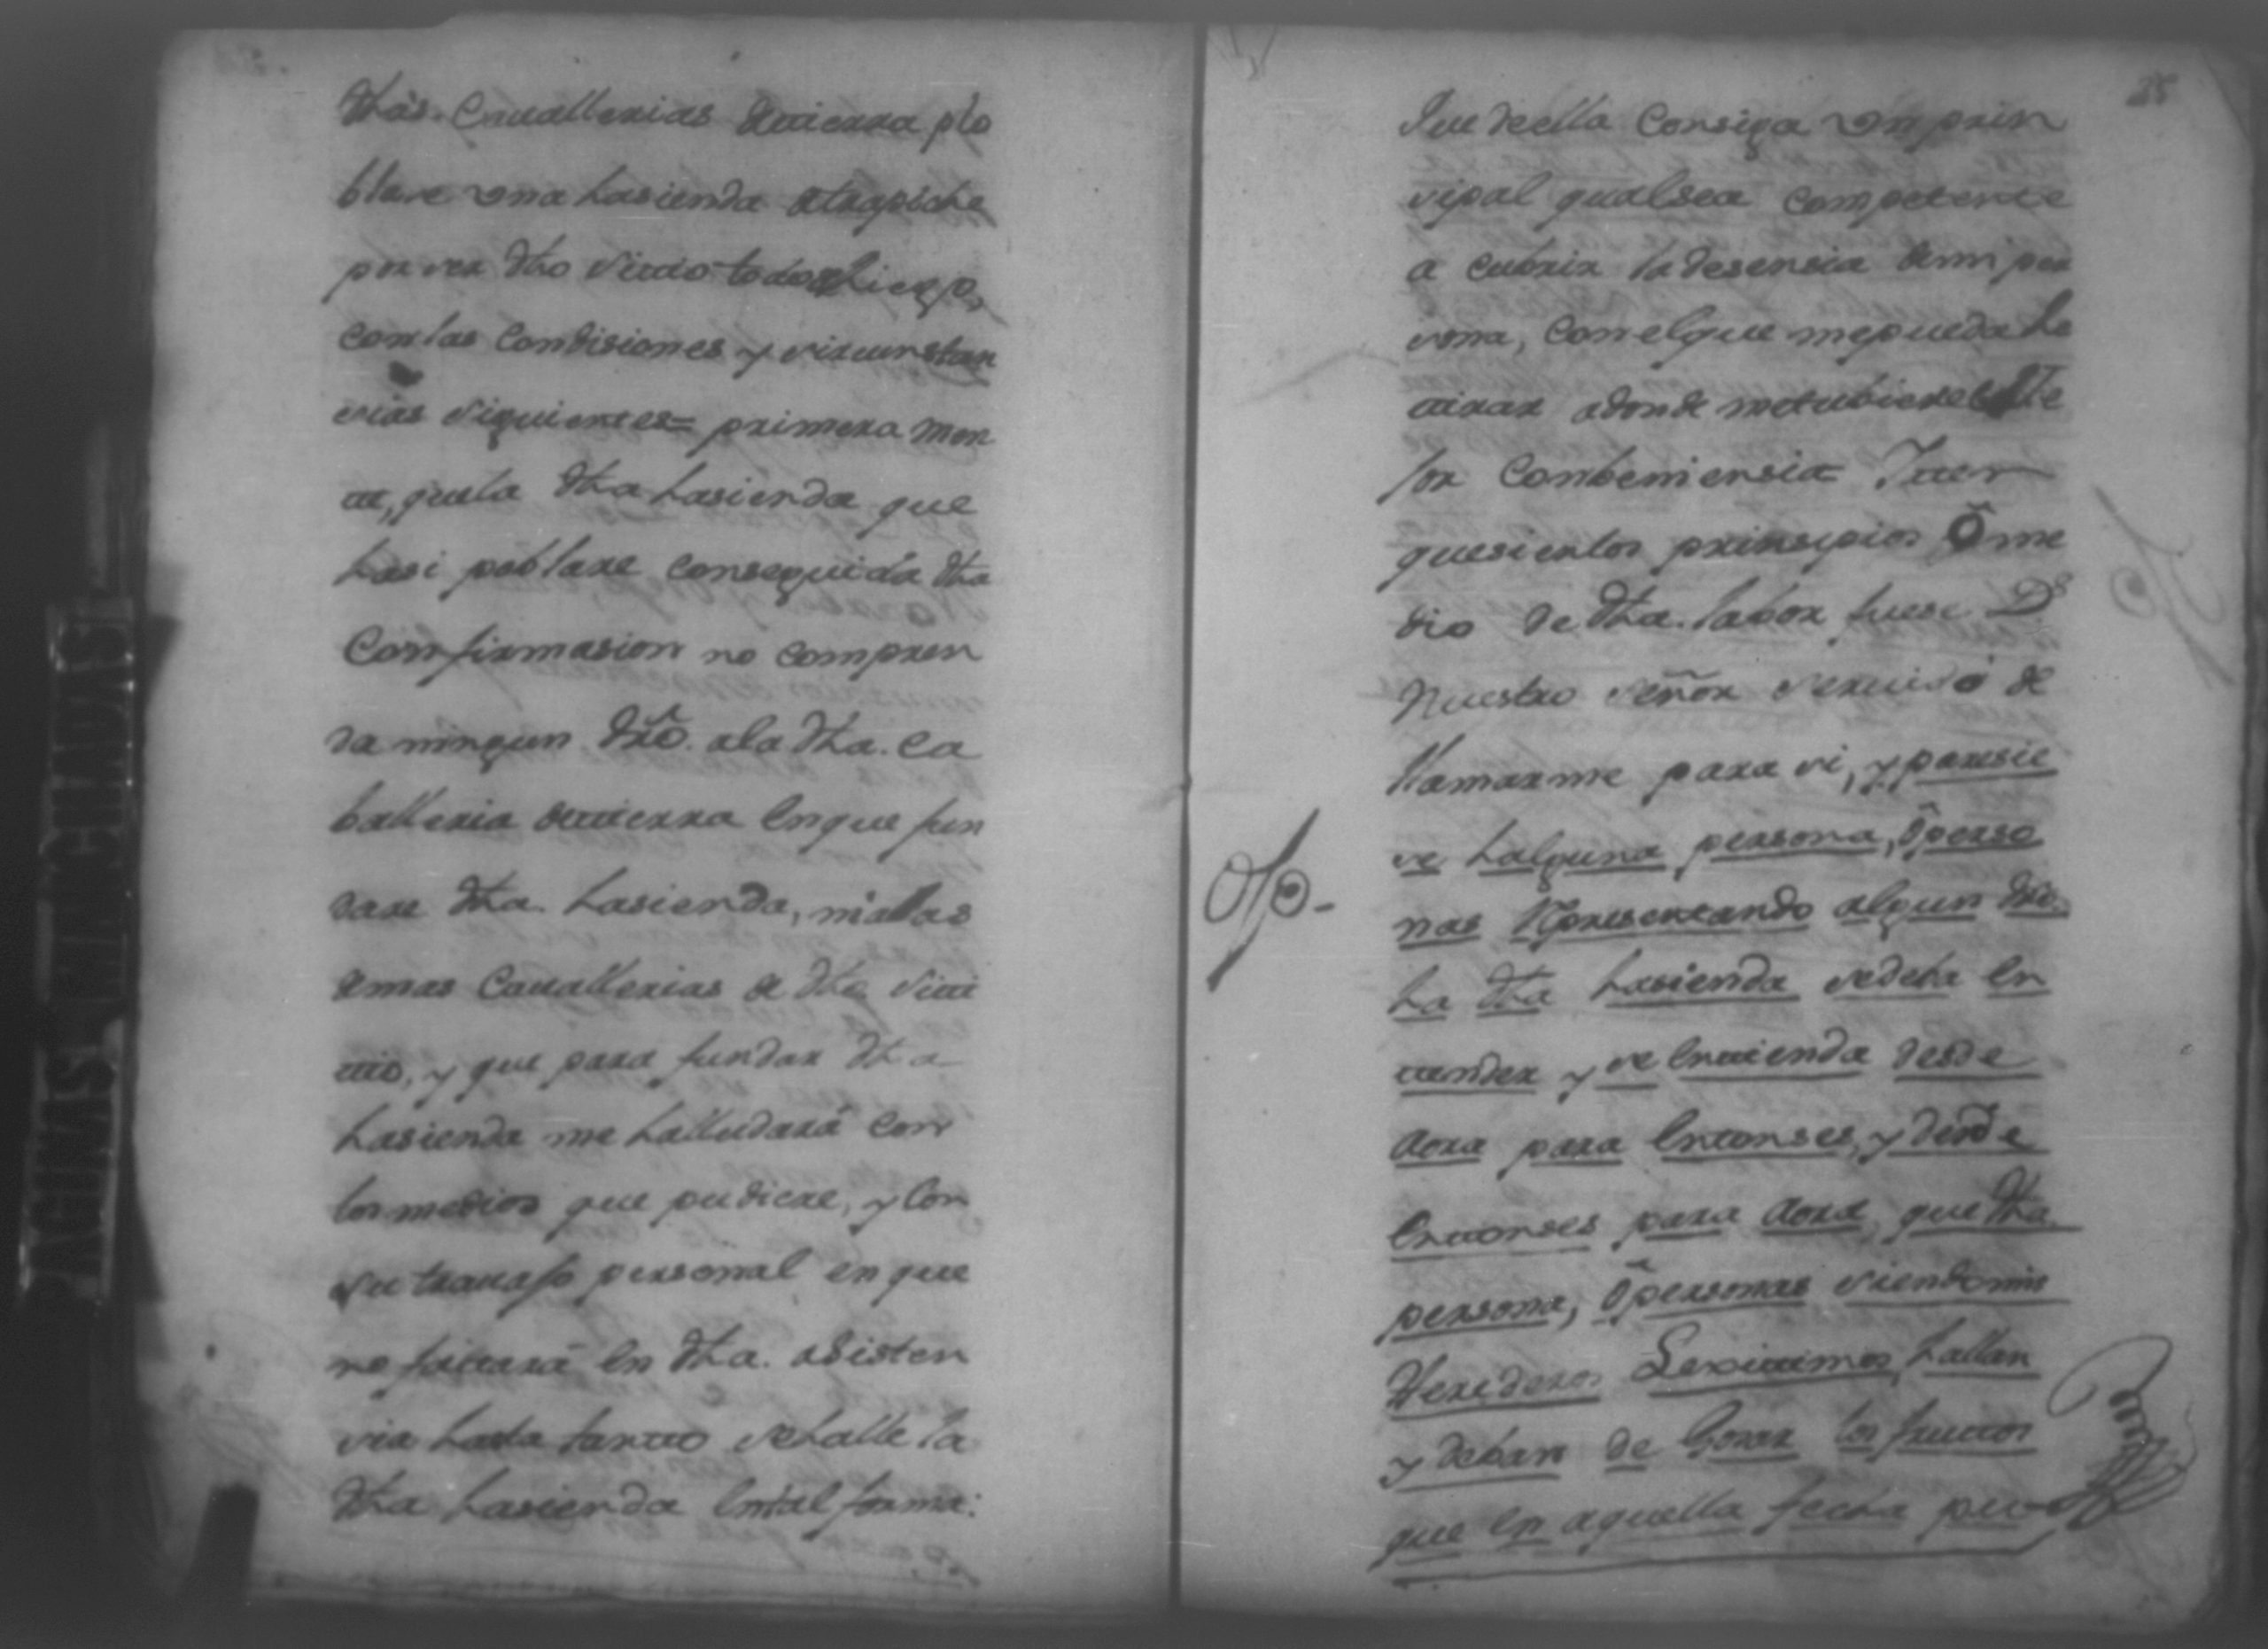 dhas. Cauallerias detierra po
blare vna hasienda otrapiche
por ser dho Sitio todo
con las Condisiones y sircunstan
sias siguientes = primera men
te, que la dha hasienda que
hasi poblare conseguida dha
Comfirmasion no compren
da ningun dro. ala dha. Ca
balleria detierra Enque fun
dare dha. hasienda, nialas
demas Cauallerias de dho Siti
tio, y que para fundar dha
hasienda me halludará con
los medios que pudiere, y Con
su trauajo personal en que
no faltará En dha. asisten
sia hasta tanto sehalle la
dha hasiendaEntal forma:
25
Que deella Consiga Un prin
sipal qualsea Competente
a cubrir la desensia demi per
sona, Conelque mepueda Re
tirar adonde metubiere
jor Conbeniensia = Iten
quesienlos prinsipios Ó me
dio de dha. labor fuese Ds.
Nuestro Señor seruido de
llamarme para si, y paresie
se halguna persona, óperso
nas Representando algun dro.
ha dha hasienda sedeba En
tender y se Entienda desde
aora para Entonses, y desde
Entonses para aora, que dha
persona, ópersonas siendo mis
Herederos Lexitimos hallan
y deban de Gosar los fructos
que En aquella fecha